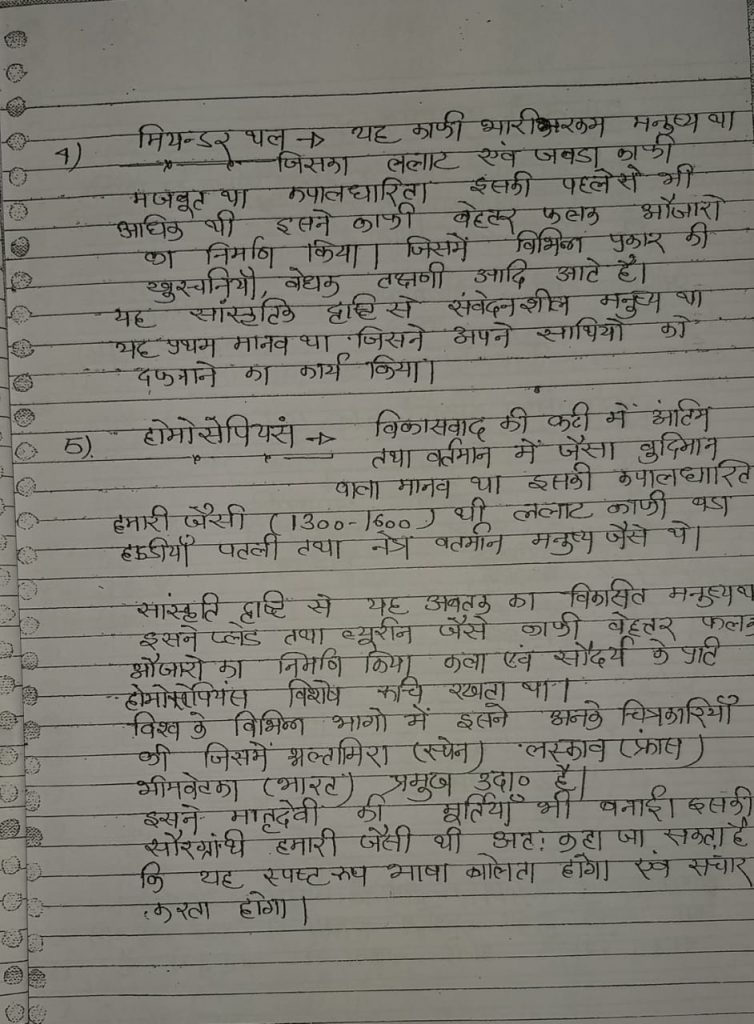 4) मियन्डर थल → यह काफी भारीभरकम मनुष्य था
जिसका ललाट एवं जबडा काफी
मजबूत था कपालधारिता इसकी पहलेसे भी
अधिक थी इसने काफी बेहतर फलक औजारो
का निर्माण किया। जिसमें विभिन्न प्रकार की
खुरचनियाँ, वेधक तक्षणी आदि आते है।
यह सांस्कृतिक दृष्टि से संवेदनशील मनुष्य था
यह प्रथम मानव था जिसने अपने साथियों को
दफनाने का कार्य किया।
5) होमोसेपियसं → विकासवाद की कडी में अंतिम
तथा वर्तमान में जैसा बुदिमान
वाला मानव था इसकी कपालधारित
हमारी जैसी (1300-1600) थी ललाट काफी बडा
हडडीयाँ पतली तथा नेत्र वतमान मनुष्य जैसे थे।
सांस्कृति दृष्टि से यह अबतक का विकसित मनुष्यथ
इसने ब्लेड तथा ब्यूरीन जैसे काफी बेहतर फलक
औजारो का निर्माण किया कला एवं सौदर्य के प्रति
होमोसेपियंस विशेष रूचि रखता था।
विश्व के विभिन्न भागो में इसने अनके चित्रकारियाँ
की जिसमें अल्तामिरा (स्पेन) लस्काव (फ्रांस)
भीमवेटका (भारत) प्रमुख उदा० है।
इसने मातृदेवी की मूर्तियाँ भी बनाई। इसकी
सौरग्रंथी हमारी जैसी थी अत: कहा जा सकता है
कि यह स्पष्ट रूप भाषा बोलता होगा एवं संचार
करता होगा।